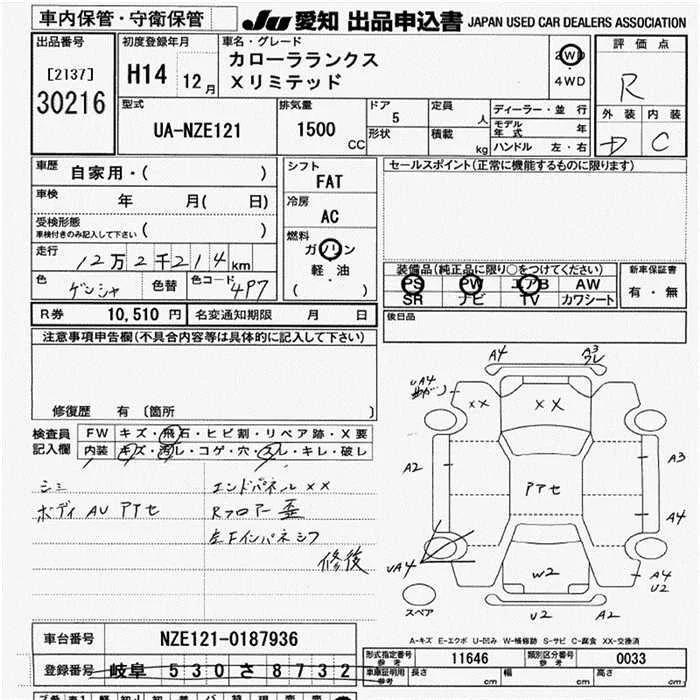 車内保管・守衛保管
JU 愛知 出品申込書 JAPAN USED CAR DEALERS ASSOCIATION
出品番号
[2137]
30216
初度登録年月
H14 12月
車名・グレード
カローラランクス
Xリミテッド
2WD
4WD
評価点
R
外装 内装
D C
型式
UA-NZE121
排気量
1500 CC
ドア
5
形状
定員
人
積載
kg
ディーラー・並行
モデル年式 年
ハンドル 左・右
車歴
自家用・( )
車検
年 月( 日)
受検形態
車検付きのみ記入して下さい ( )
走行
12万2千214km
色
ゲンシャ
色替
色コード
4P7
シフト
FAT
冷房
AC
燃料
ガソリン
軽・油
( )
セールスポイント(正常に機能するものに限ります)
装備品(純正品に限り○をつけてください)
PS PW エアB AW
SR ナビ TV カワシート
新車保証書
有・無
R券 10,510円 名変通知期限 月 日
後日品
注意事項申告欄(不具合内容等は具体的に記入して下さい)
修復歴 有 〔箇所 〕
検査員
記入欄
FW キズ・飛石・ヒビ割・リペア跡・X要
内装 キズ・汚レ・コゲ・穴・スレ・キレ・破レ
シミ
ボディ AU PTセ
エンドパネル××
Rフロアー 歪
左Fインパネシワ
修後
A4
A3
ワレ
UA4
曲がり
××
××
A2
A3
PTセ
A4
UA4
W2
A4
U2
スペア
U2
A2
A-キズ E-エクボ U-凹み W-補修跡 S-サビ C-腐食 XX-交換済
車台番号 NZE121-0187936
登録番号 岐阜 530 さ 8732
型式指定番号
参考
11646
類別区分番号
参考
0033
車庫証明用
参考
長さ cm 幅 cm 高さ cm